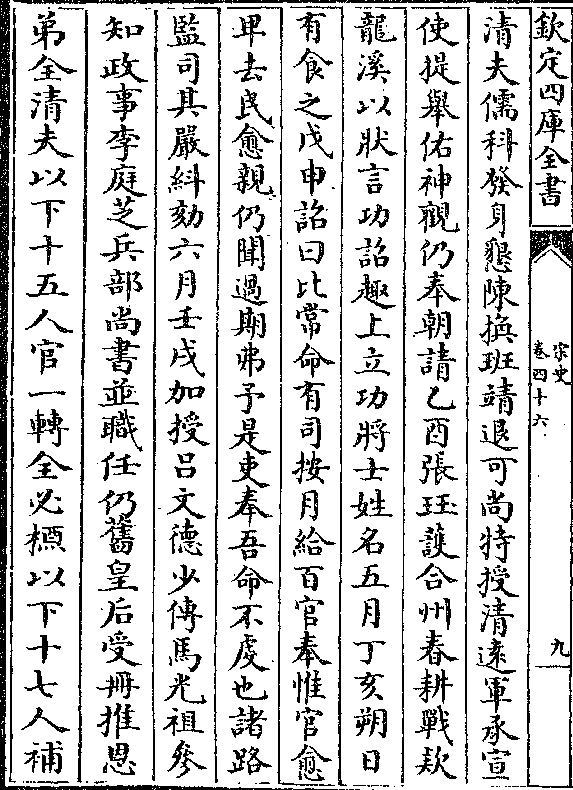 欽定四庫全書
宋史
卷四十六
九
清夫儒科發身懇陳換班靖退可尚特授清遠軍承宣
使提舉佑神觀仍奉朝請乙酉張珏護合州春耕戰款
龍溪以狀言功詔趣上立功將士姓名五月丁亥朔日
有食之戊申詔曰比常命有司按月給百官奉惟官愈
卑去民愈親仍聞過期弗予是吏奉吾命不虔也諸路
監司其嚴糾劾六月壬戌加授呂文德少傅馬光祖參
知政事李庭芝兵部尚書並職任仍舊皇后受冊推恩
弟全清夫以下十五人官一轉全必櫄以下十七人補